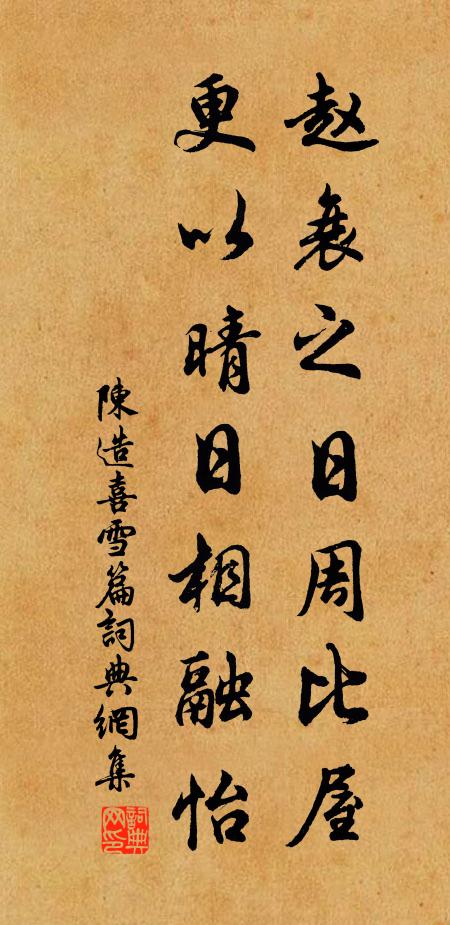 赵衰之日周比屋
更以晴日相融怡
陳造喜雪篇詞典網集
詞典网印